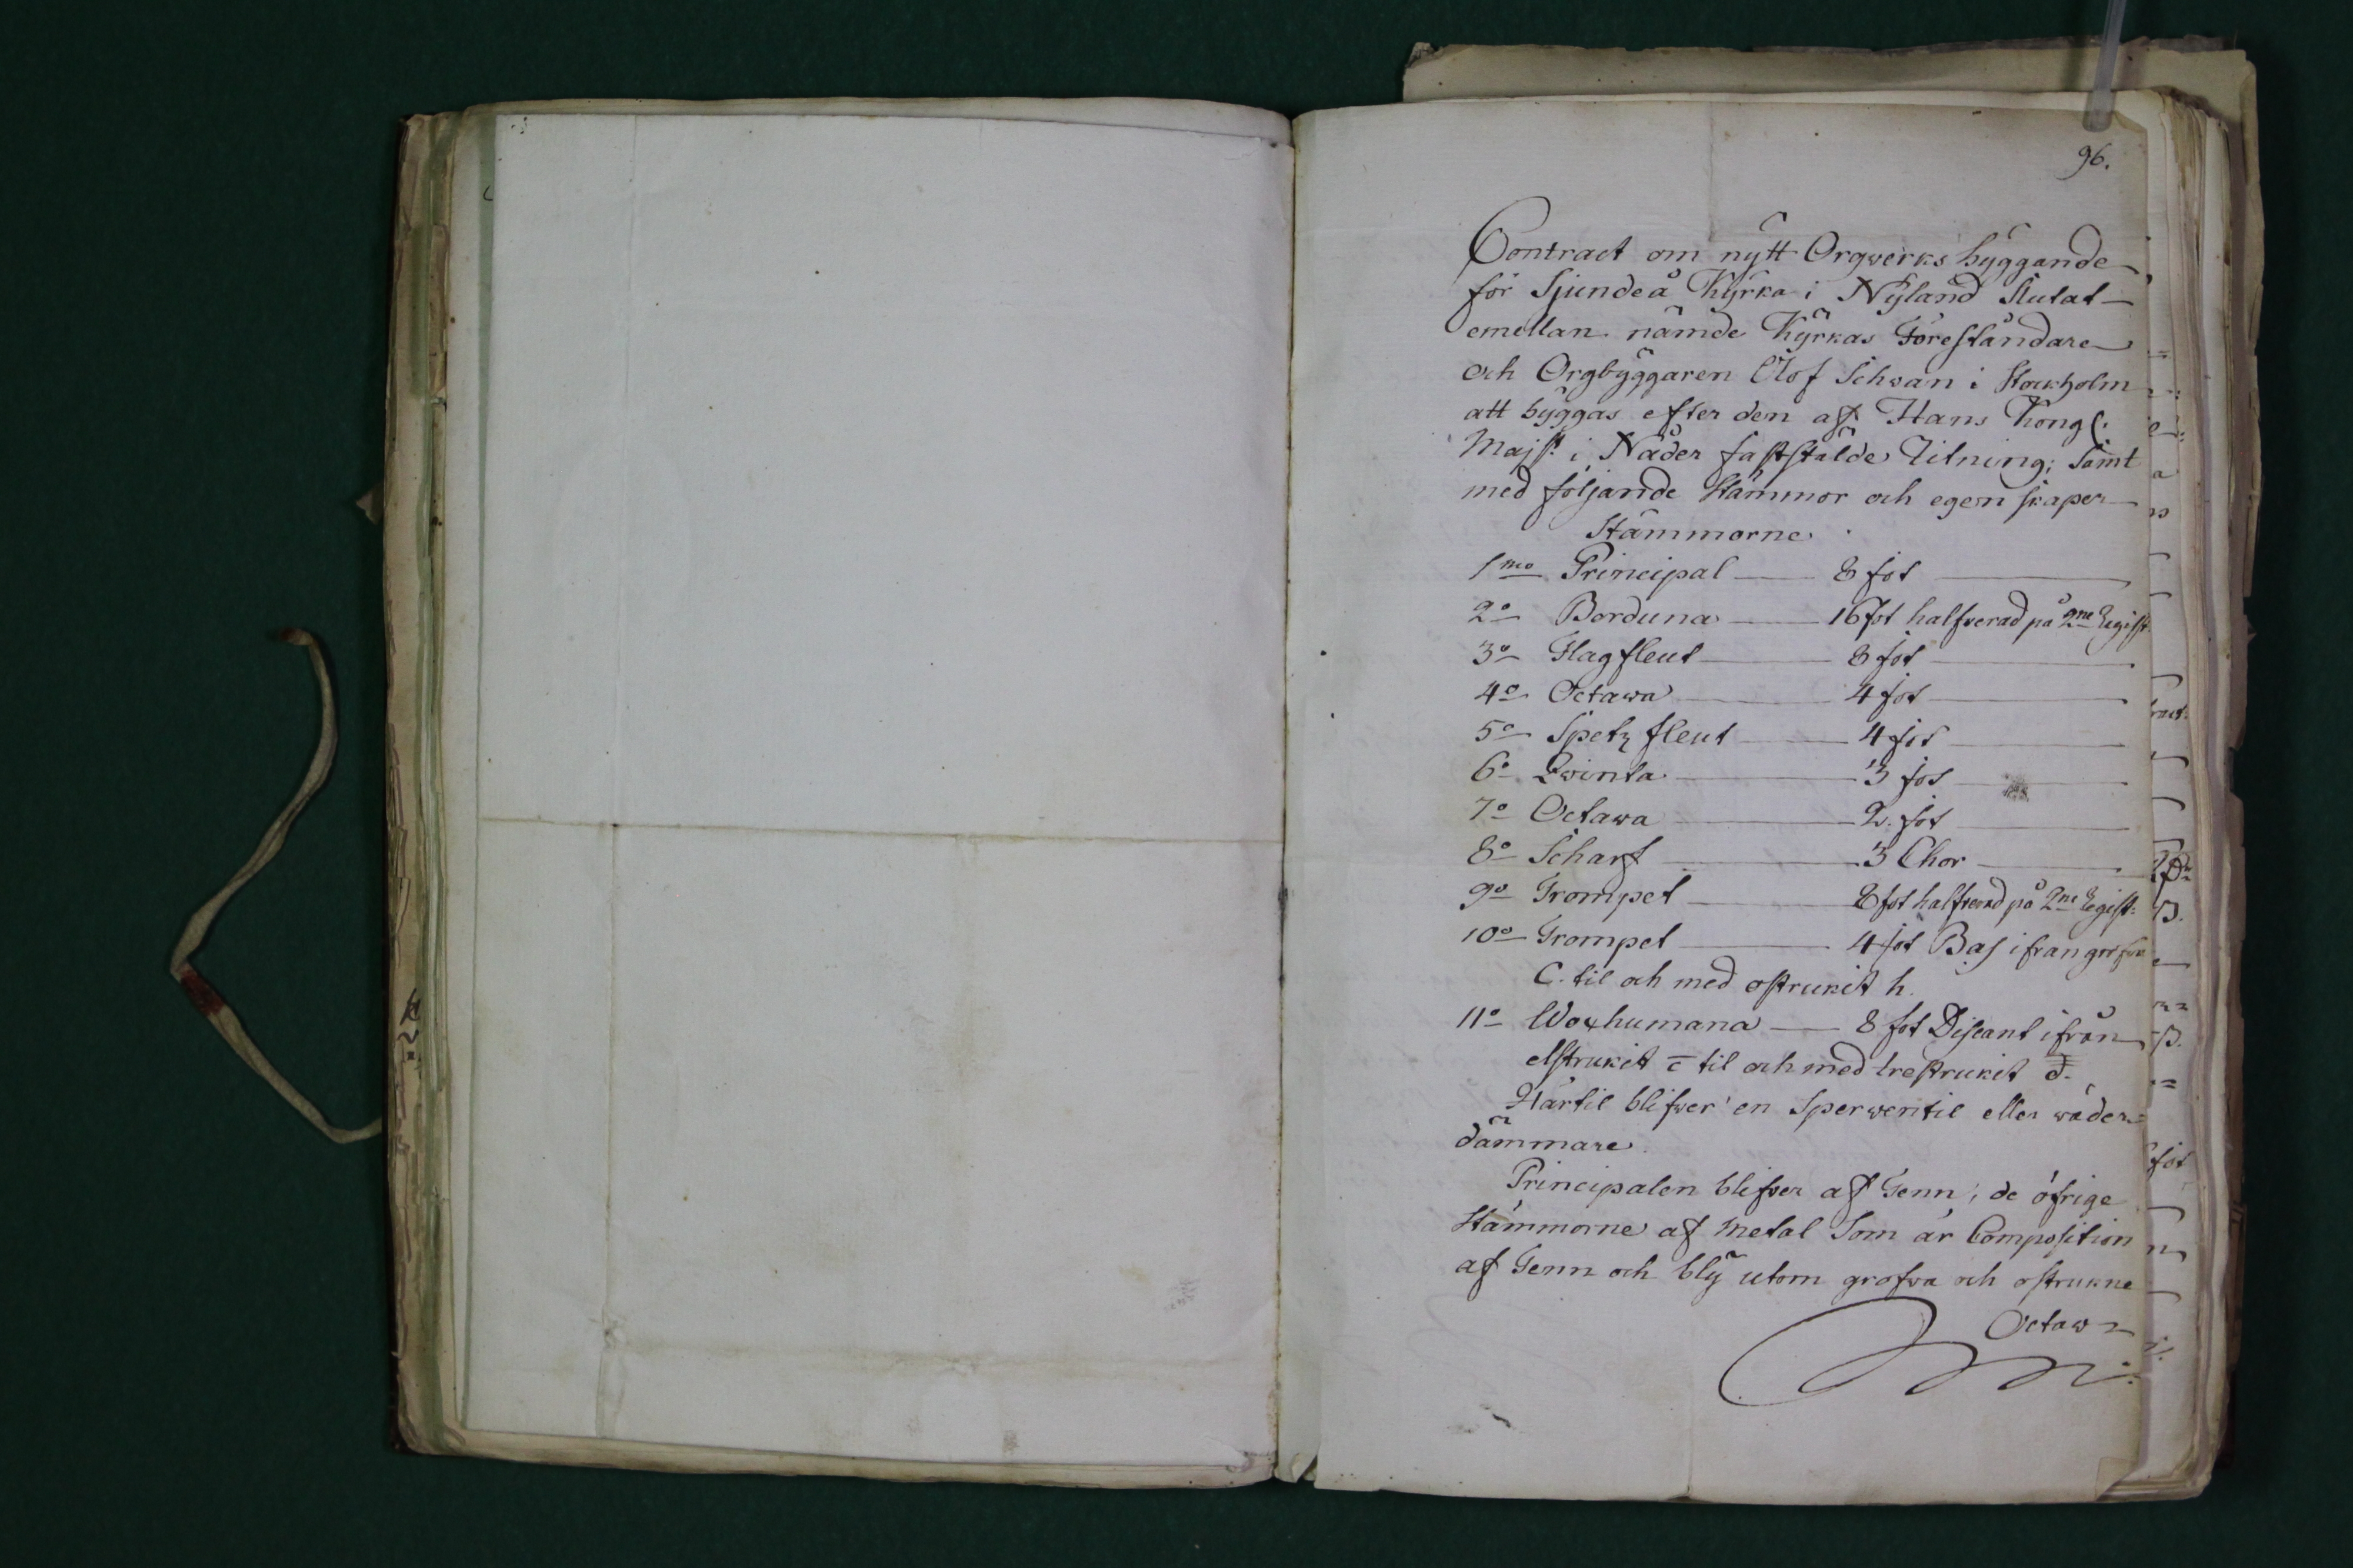 96.
Contract om nÿtt Orgwerks bÿggande
för Sjundeå Kÿrka i Nÿland Slutat
emellan nämde Kÿrkas Föreståndare
och Orgbÿggaren Olof Schwan i Stockholm
att bÿggas efter den af Hans Kongl.
Majst. i Nåder faststälde Ritning; Samt
med följande Stämmor och egenskaper
Stämmorne
1mo Principal — 8 fot
2o Borduna — 16 fot halfverad på 2ne Regist.
3o Flagfleut — 8 fot
4o Octawa — 4 fot
5o Spetzfleut — 4 fot
6o Qwinta — 3 fot
7o Octawa — 2. fot
8o Scharf — 3 Chor
9o Trompet — 8 fot halfverad på 2ne Regist:
10o Trompet — 4 fot Bas ifrån grofva
C. til och med ostrukit h.
11o Woxhumana — 8 fot Discant ifrån
etstrukit c̄ til och med trestrukit d̿.
Härtil blifver en Sperwentil eller wäder=
dämmare.
Principalen blifver af Tenn; de öfrige
Stämmorne af Metal Som är Composition
af Tenn och blÿ utom grofva och ostrukne
Octaw